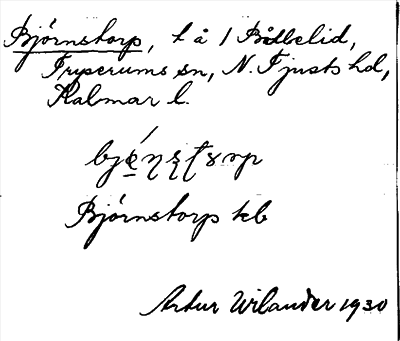 Björnstorp, t å 1 Båtbelid,
Tryserums sn, N. Tjusts hd,
Kalmar l.
Björnstorp kb
Artur Wilander 1930